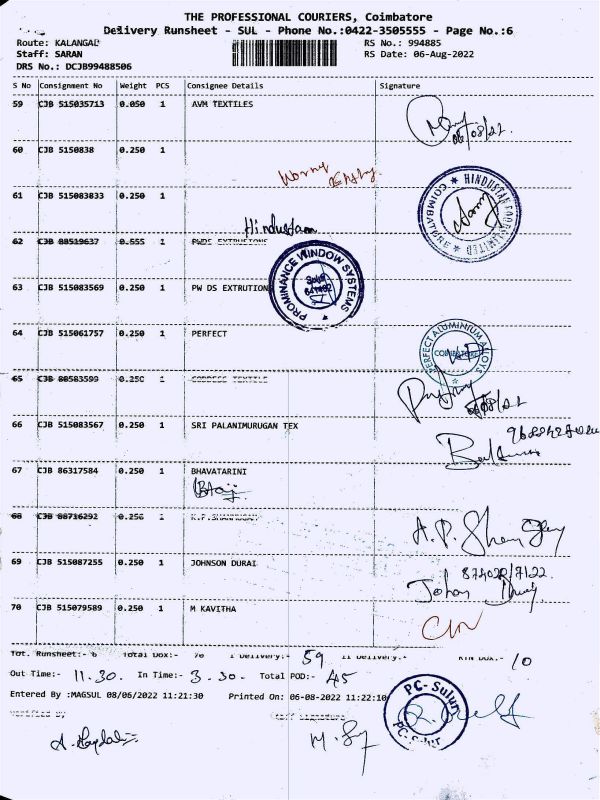 THE PROFESSIONAL COURIERS, Coimbatore
Delivery Runsheet - SUL - Phone No.:0422-3505555 - Page No.:6
Route: KALANGAL RS No.: 994885
Staff: SARAN RS Date: 06-Aug-2022
DRS No.: DCJB99488506
S No Consignment No Weight PCS Consignee Details Signature
59 CJB 515035713 0.050 1 AVM TEXTILES
06/08/22.
60 CJB 5150838 0.250 1
61 CJB 515083833 0.250 1
HINDUSTAN LIMITED COIMBATORE
Hindustan
62 CJB 88519637 0.555 1 PWDS EXTRUTIONS
63 CJB 515083569 0.250 1 PW DS EXTRUTION
PROMINANCE WINDOW SYSTEMS
64 CJB 515061757 0.250 1 PERFECT
PERFECT ALUMINIUM ALLOYS
COIMBATORE
65 CJB 88583599 0.250 1 GODDESS TEXTILE
66 CJB 515083567 0.250 1 SRI PALANIMURUGAN TEX
67 CJB 86317584 0.250 1 BHAVATARINI
68 CJB 88716292 0.250 1 K.P.SHANMUGAM
69 CJB 515087255 0.250 1 JOHNSON DURAI
70 CJB 515079589 0.250 1 M KAVITHA
Tot. Runsheet:- 6 Total Dox:- 70 I Delivery:- 59 II Delivery:- RTN Dox.- 10
Out Time:- 11.30. In Time:- 3.30. Total POD:- 45
Entered By :MAGSUL 08/06/2022 11:21:30 Printed On: 06-08-2022 11:22:10
PC-Sulur
PC-Sulur
Verified By Staff Signature